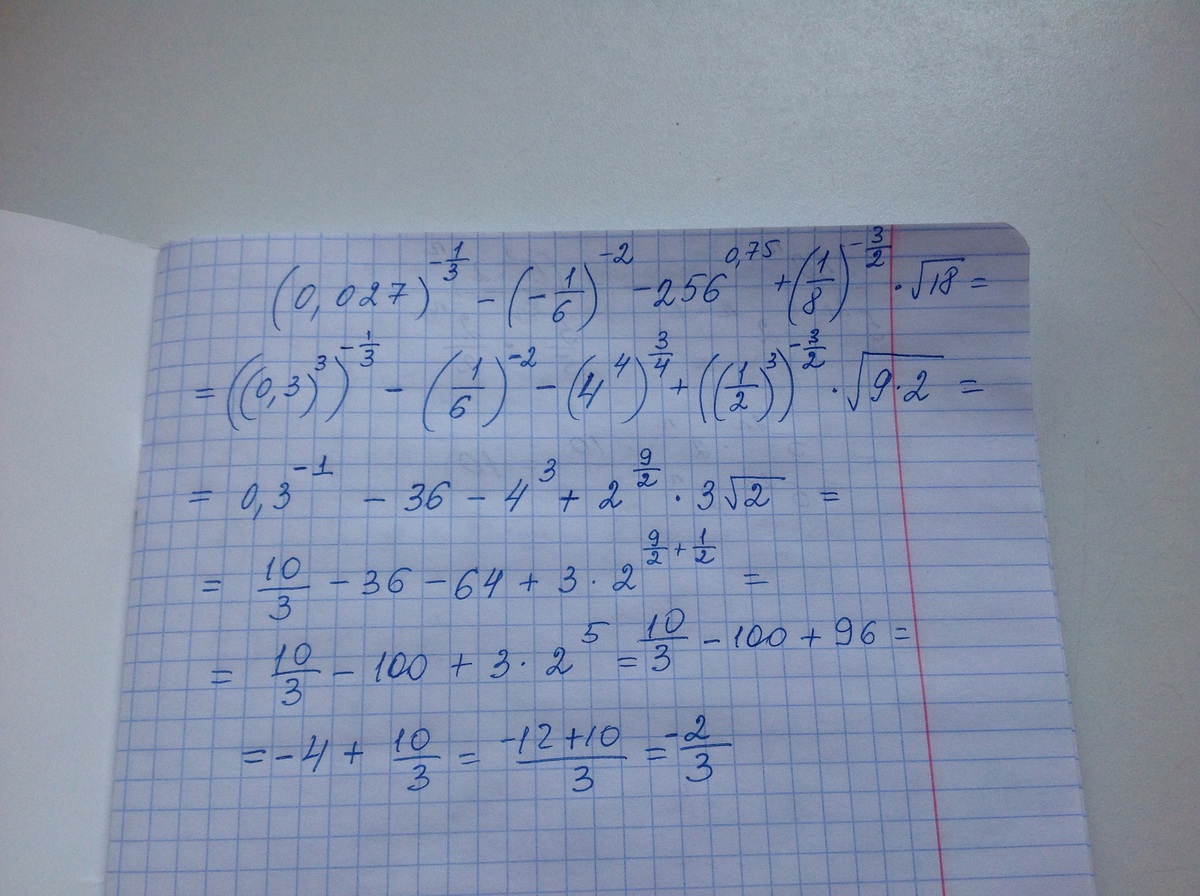 (0,027)^{-\frac{1}{3}} - (-\frac{1}{6})^{-2} - 256^{0,75} + (\frac{1}{8})^{-\frac{3}{2}} · √18 =
= ((0,3)^3)^{-\frac{1}{3}} - (\frac{1}{6})^{-2} - (4^4)^{\frac{3}{4}} + ((\frac{1}{2})^3)^{-\frac{3}{2}} · √{9·2} =
= 0,3^{-1} - 36 - 4^3 + 2^{\frac{9}{2}} · 3√2 =
= \frac{10}{3} - 36 - 64 + 3 · 2^{\frac{9}{2} + \frac{1}{2}} =
= \frac{10}{3} - 100 + 3 · 2^5 = \frac{10}{3} - 100 + 96 =
= -4 + \frac{10}{3} = \frac{-12+10}{3} = -\frac{2}{3}